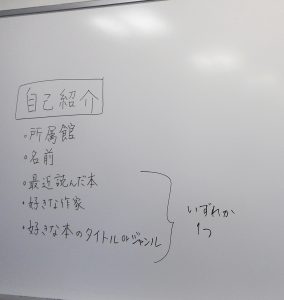 自己紹介
・所属館
・名前
・最近読んだ本
・好きな作家
・好きな本のタイトルorジャンル
いずれか
1つ